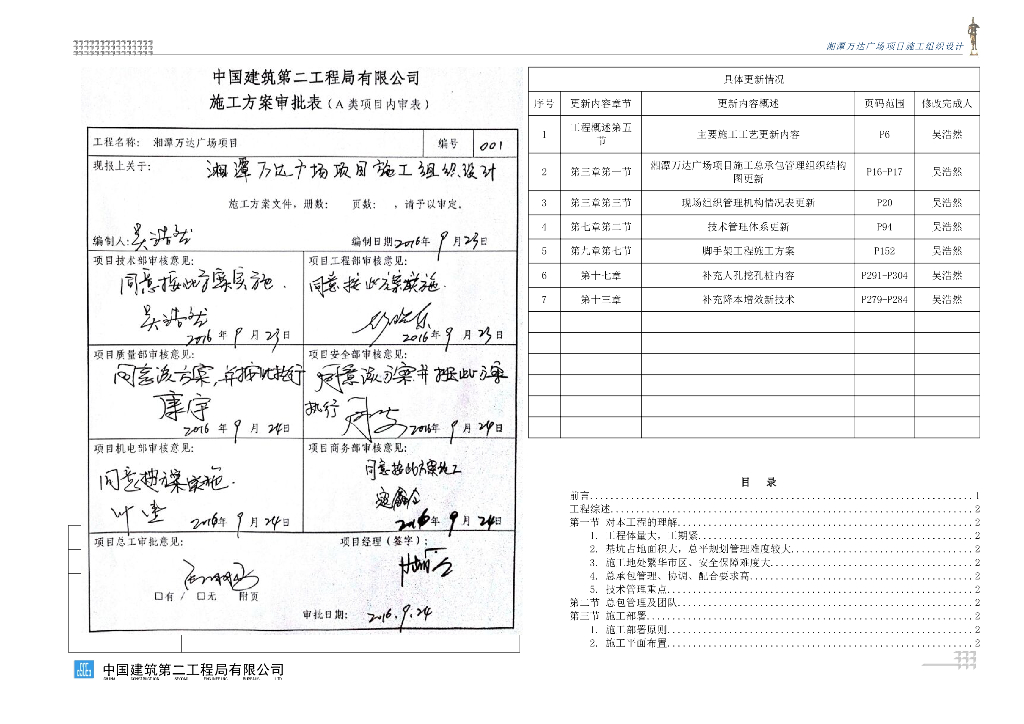 湘潭万达广场项目施工组织设计
中国建筑第二工程局有限公司
施工方案审批表（A 类项目内审表）
工程名称: 湘潭万达广场项目 编号 001
现报上关于: 湘潭万达广场项目施工组织设计
施工方案文件，册数: 页数: ，请予以审定。
编制人: 吴浩然 编制日期 2016年 9 月 23 日
项目技术部审核意见:
同意按此方案实施.
吴浩然
2016 年 9 月 23 日
项目工程部审核意见:
同意按此方案实施.
2016 年 9 月 23 日
项目质量部审核意见:
同意该方案,并按此执行
康宇
2016 年 9 月 24 日
项目安全部审核意见:
同意该方案并按此方案
执行
2016年 9 月 24 日
项目机电部审核意见:
同意按方案实施.
2016年 9 月 24 日
项目商务部审核意见:
同意按此方案施工
2016年 9 月 24 日
项目总工审批意见:
项目经理（签字）:
口有 / 口无 附页
审批日期: 2016.9.24
中国建筑第二工程局有限公司
具体更新情况
序号 更新内容章节 更新内容概述 页码范围 修改完成人
1 工程概述第五节 主要施工工艺更新内容 P6 吴浩然
2 第三章第一节 湘潭万达广场项目施工总承包管理组织结构图更新 P16-P17 吴浩然
3 第三章第三节 现场组织管理机构情况表更新 P20 吴浩然
4 第七章第二节 技术管理体系更新 P94 吴浩然
5 第九章第七节 脚手架工程施工方案 P152 吴浩然
6 第十七章 补充人孔挖孔桩内容 P291-P304 吴浩然
7 第十三章 补充降本增效新技术 P279-P284 吴浩然
目 录
前言 1
工程综述 2
第一节 对本工程的理解 2
1. 工程体量大，工期紧 2
2. 基坑占地面积大，总平规划管理难度较大 2
3. 施工地处繁华市区、安全保障难度大 2
4. 总承包管理、协调、配合要求高 2
5. 技术管理重点 2
第二节 总包管理及团队 2
第三节 施工部署 2
1. 施工部署原则 2
2. 施工平面布置 2